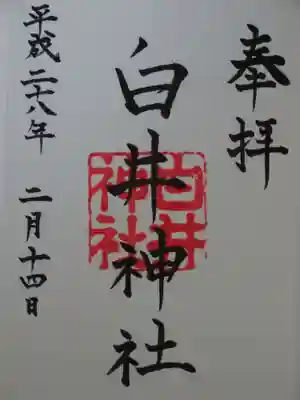 奉拝
白井神社
白井神社
平成二十八年 二月十四日